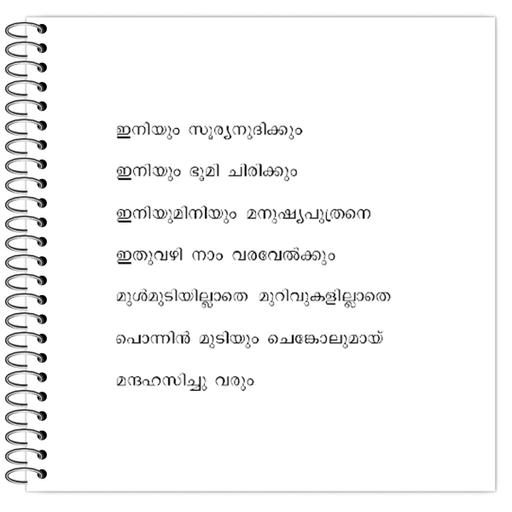 ഇനിയും സൂര്യനുദിക്കും
ഇനിയും ഭൂമി ചിരിക്കും
ഇനിയുമിനിയും മനുഷ്യപുത്രനെ
ഇതുവഴി നാം വരവേൽക്കും
മുൾമുടിയില്ലാതെ മുറിവുകളില്ലാതെ
പൊന്നിൻ മുടിയും ചെങ്കോലുമായ്
മന്ദഹസിച്ചു വരും